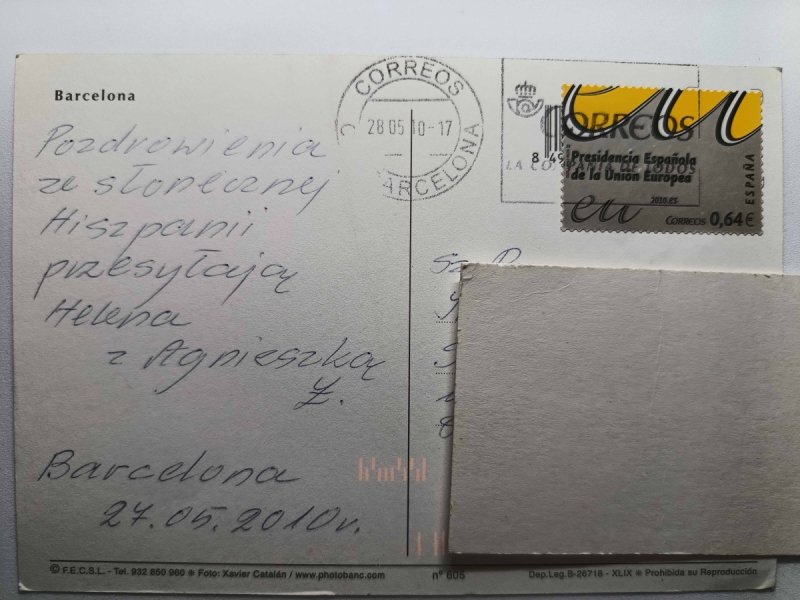 Barcelona
Pozdrowienia
ze słonecznej
Hiszpanii
przesyłają
Helena
z Agnieszką
Ż.
Barcelona
27.05.2010r.
CORREOS
28 05 10-17
BARCELONA
CORREOS
Presidencia Española
de la Unión Europea
eu
2010.es
CORREOS 0,64€
ESPAÑA
Sz. P.
© F.E.C.S.L. - Tel. 932 850 960 ❖ Foto: Xavier Catalán / www.photobanc.com
nº 605
Dep.Leg.B-26718 - XLIX ❖ Prohibida su Reproducción